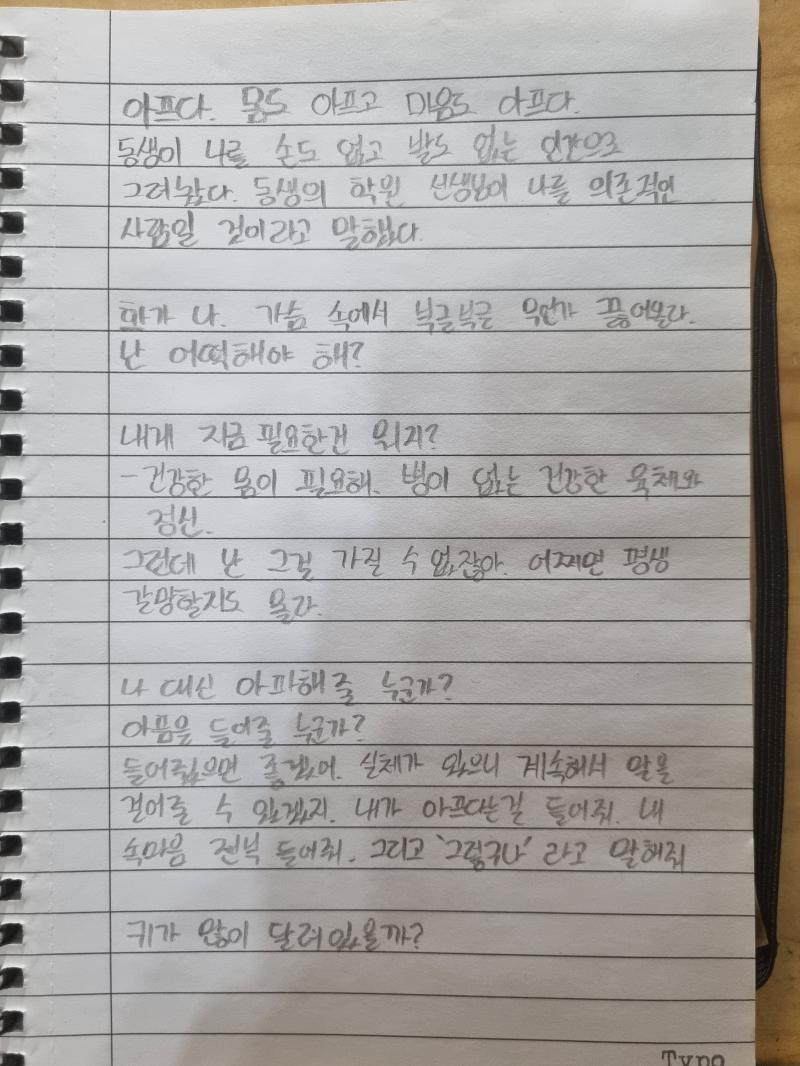 아프다. 몸도 아프고 마음도 아프다.
동생이 나를 손도 없고 발도 없는 인간으로
그려놨다. 동생의 학원 선생님이 나를 의존적인
사람일 것이라고 말했다.
화가 나. 가슴 속에서 부글부글 무언가 끓어올라.
난 어떡해야 해?
내게 지금 필요한건 뭐지?
- 건강한 몸이 필요해. 병이 없는 건강한 육체와
정신.
그런데 난 그걸 가질 수 없잖아. 어쩌면 평생
갈망할지도 몰라.
나 대신 아파해줄 누군가?
아픔을 들어줄 누군가?
들어줬으면 좋겠어. 실체가 있으니 계속해서 말을
걸어줄 수 있겠지. 내가 아프다는걸 들어줘. 내
속마음 전부 들어줘. 그리고 '그렇구나' 라고 말해줘
귀가 많이 달려있을까?
Typo